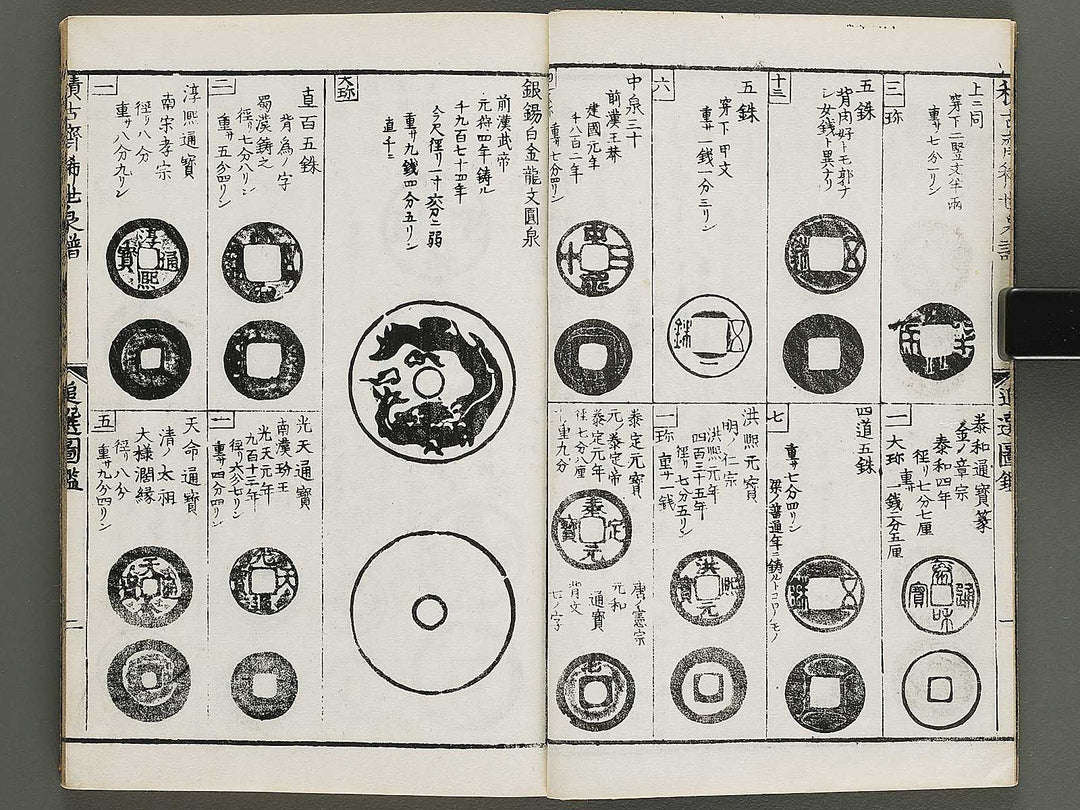 上二同
穿下二竪文半両
重サ七分一リン
三
珎
五銖
背肉好トモ郭ナ
シ女銭ト異ナリ
十三
五銖
穿下甲文
重サ一銭一分三リン
六
中泉三十
前漢王莽
建國元年
千八百一年
重サ七分四リン
泰和通寶篆
金ノ章宗
泰和四年
径リ七分七厘
重サ一銭二分五厘
大珎
一
四道五銖
重サ七分四リン
梁ノ普通年ニ鋳ルトコロノモノ
七
洪熙元寶
明ノ仁宗
洪熙元年
四百三十五年
径リ七分五リン
重サ一銭
一
珎
泰定元寶
元ノ泰定帝
泰定元年
径七分八厘
重九分
唐ノ憲宗
元和
通寶
背文
七ノ字
銀錫白金龍文圓泉
前漢武帝
元狩四年鋳ル
千九百七十四年
今尺径リ一寸六分二弱
重サ九銭四分五リン
直千二
大珎
直百五銖
背為ノ字
蜀漢鋳之
径リ七分八リン
重サ五分四リン
二
淳熙通寶
南宋孝宗
径リ八分
重サ八分九リン
一
光天通寶
南漢玢王
光天元年
九百十三年
径リ六分七リン
重サ四分四リン
一
天命通寶
清ノ太祖
大様濶縁
径リ八分
重サ九分四リン
五
追選圖鑑
二